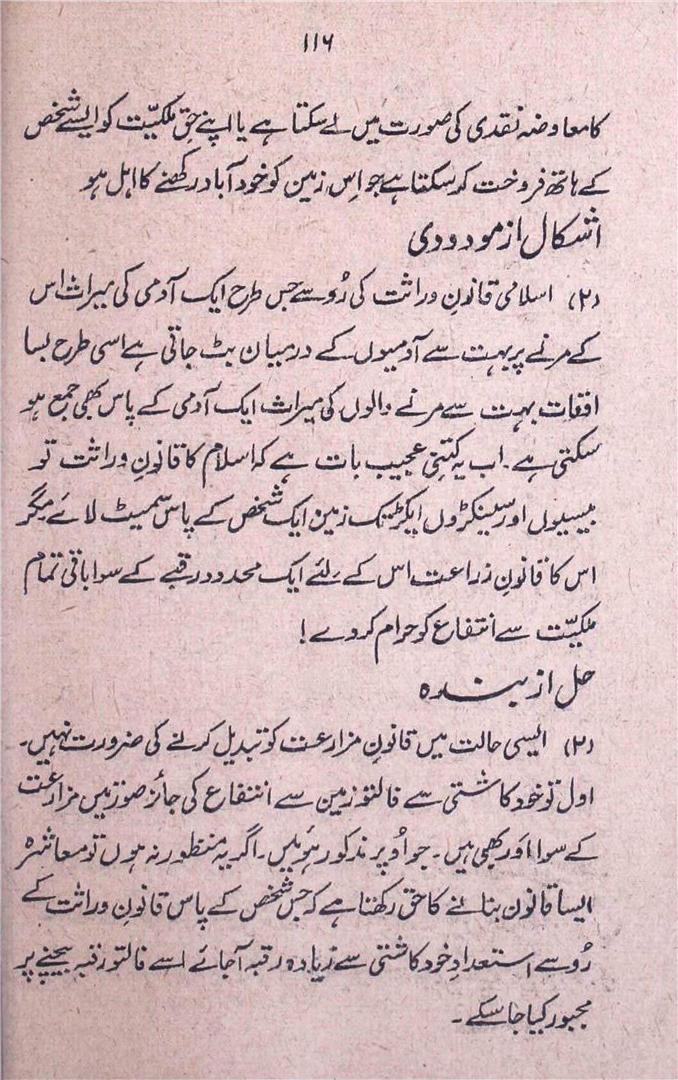 ۱۱۶
کا معاوضہ نقدی کی صورت میں لے سکتا ہے یا اپنے حق ملکیّت کو ایسے شخص
کے ہاتھ فروخت کر سکتا ہے جو اِس زمین کو خود آباد رکھنے کا اہل ہو
اشکال از مودودی
(۲) اسلامی قانونِ وراثت کی رُو سے جس طرح ایک آدمی کی میراث اس
کے مرنے پر بہت سے آدمیوں کے درمیان بٹ جاتی ہے اسی طرح بسا
اقعات بہت سے مرنے والوں کی میراث ایک آدمی کے پاس بھی جمع ہو
سکتی ہے۔ اب یہ کتنی عجیب بات ہے کہ اسلام کا قانونِ وراثت تو
بیسیوں اور سینکڑوں ایکڑ تک زمین ایک شخص کے پاس سمیٹ لائے مگر
اس کا قانونِ زراعت اس کے لئے ایک محدود رقبے کے سوا باقی تمام
ملکیّت سے انتفاع کو حرام کر دے!
حل از بندہ
(۲) ایسی حالت میں قانونِ مزارعت کو تبدیل کرنے کی ضرورت نہیں۔
اول تو خود کاشتی سے فالتو زمین سے انتفاع کی جائز صورتیں مزارعت
کے سوا اور بھی ہیں۔ جو اُوپر مذکور ہوئیں۔ اگر یہ منظور نہ ہوں تو معاشرہ
ایسا قانون بنانے کا حق رکھتا ہے کہ جس شخص کے پاس قانونِ وراثت کے
رُو سے استعدادِ خود کاشتی سے زیادہ رقبہ آجائے اسے فالتو رقبہ بیچنے پر
مجبور کیا جا سکے۔